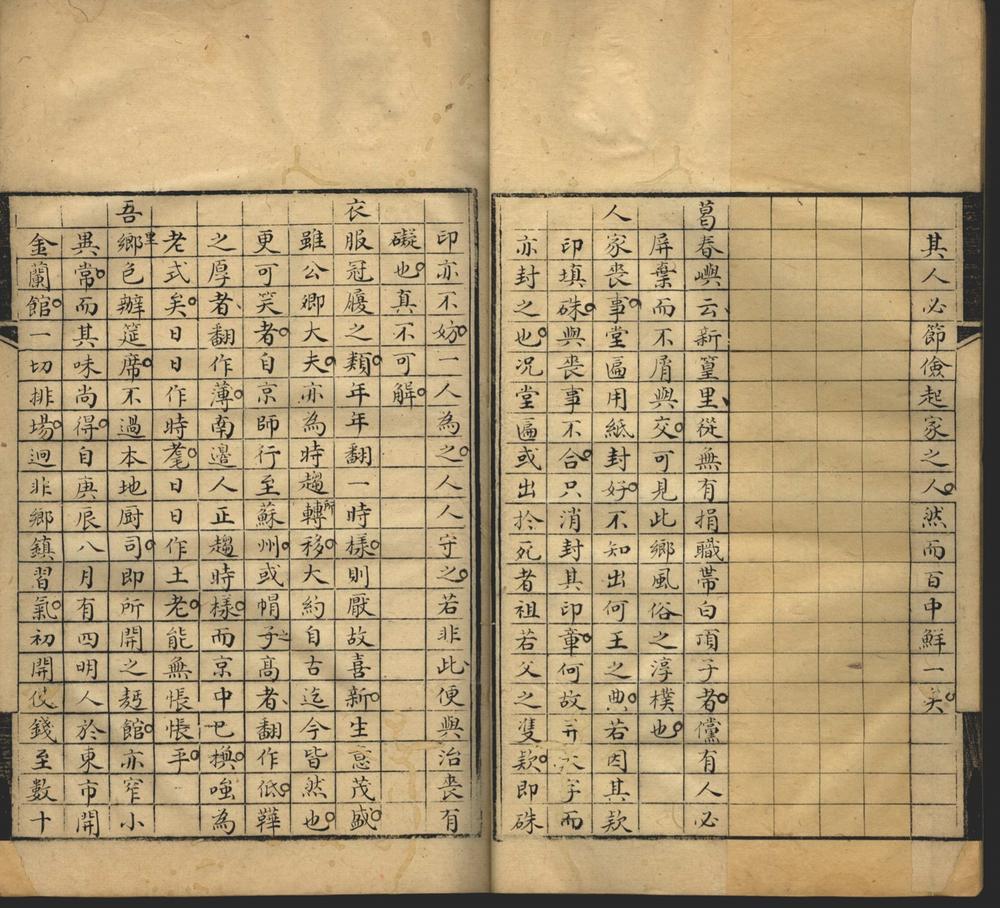 其人必節儉起家之人然而百中鮮一矣
葛春嶼云新篁里從無有捐職帶白頂子者儻有人必
屏棄而不屑與交可見此鄉風俗之淳樸也
人家喪事堂匾用紙封好不知出何王之典若因其款
印填硃與喪事不合只消封其印章何故并文字而
亦封之也况堂匾或出於死者祖若父之雙款即硃
印亦不妨一人為之人人守之若非此便與治喪有
礙也真不可解
衣服冠履之類年年翻一時樣則厭故喜新生意茂盛
雖公卿大夫亦為時趨所轉移大約自古迄今皆然也
更可笑者自京師行至蘇州或帽子之高者翻作低鞾
之厚者翻作薄南邊人正趨時樣而京中已換嗤為
老式矣日日作時髦日日作土老能無悵悵乎
吾鄉里色辦筵席不過本地厨司即所開之麪館亦窄小
異常而其味尚得自庚辰八月有四明人於東市開
金蘭館一切排場迥非鄉鎮習氣初開仅錢至數十